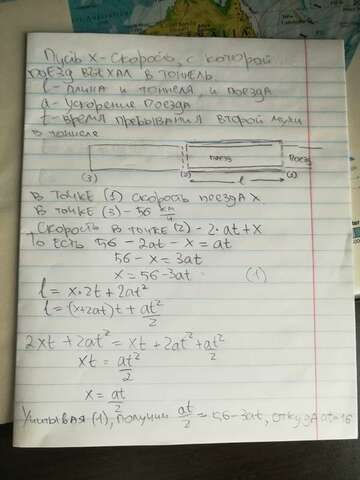 Пусть x - скорость, с которой
поезд въехал в тоннель.
l - длина и тоннеля, и поезда
a - ускорение поезда
t - время пребывания второй мухи
в тоннеле
поезд
поезд
(3) (2) l (1)
В точке (1) скорость поезда x
В точке (3) - 56 км/ч
Скорость в точке (2) - 2·at+x
То есть 56 - 2at - x = at
56 - x = 3at
x = 56-3at (1)
l = x·2t + 2at²
l = (x+2at)t + at²/2
2xt + 2at² = xt + 2at² + at²/2
xt = at²/2
x = at/2
Учитывая (1), получим at/2 = 56-3at, откуда at=16